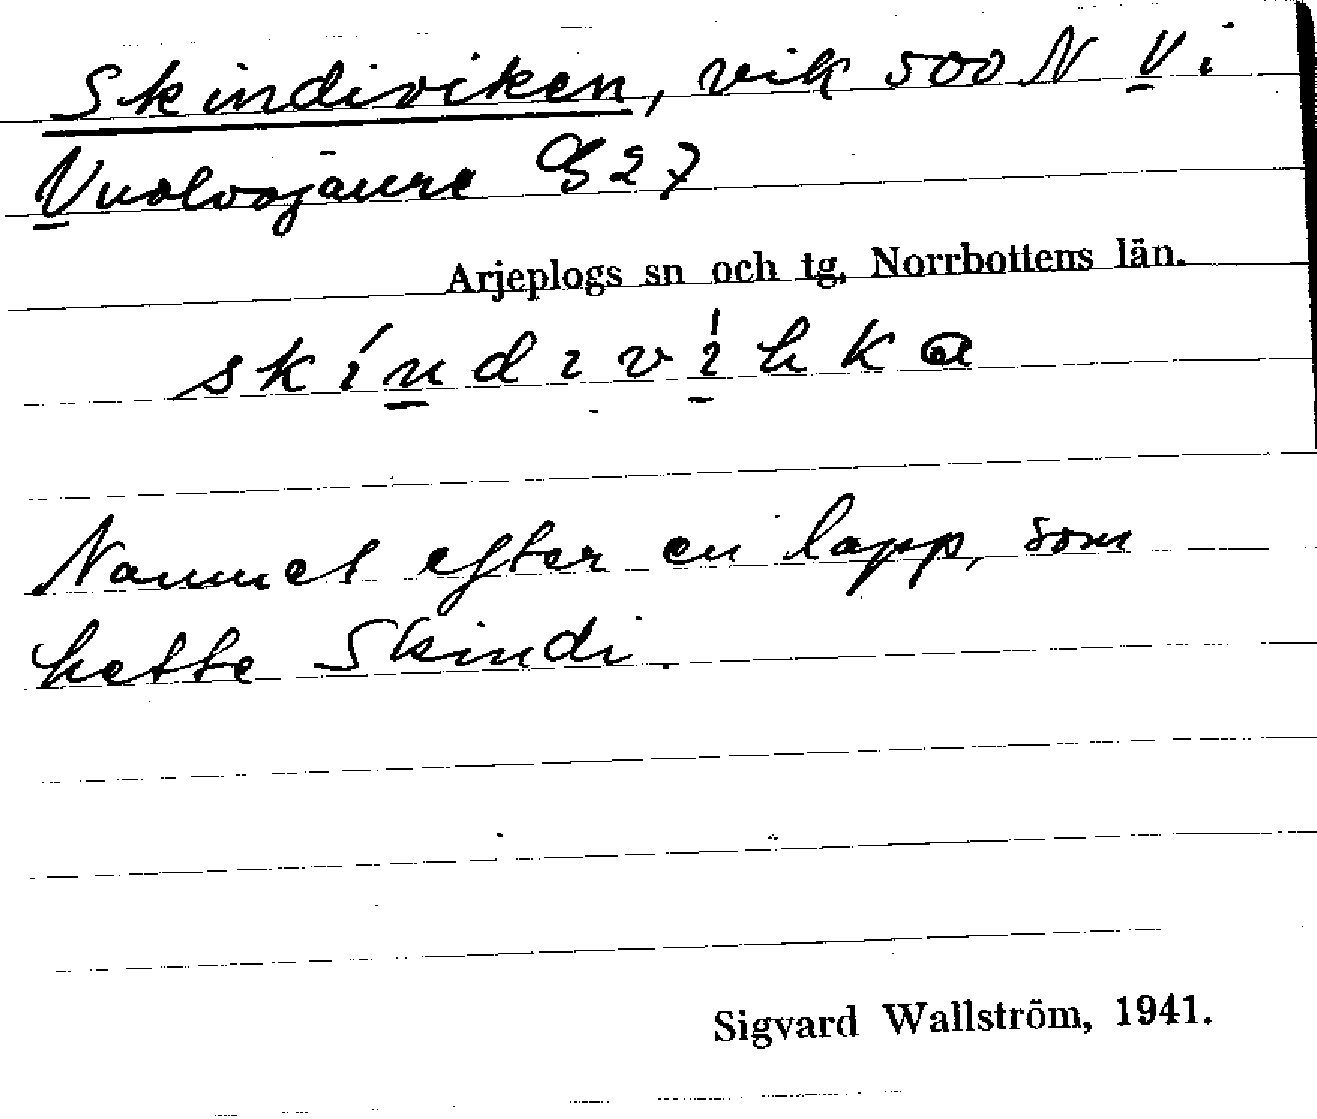 Skindiviken, vik 500 N V i
Vuolvojaure G27
Arjeplogs sn och tg. Norrbottens län.
skíndıvíhka
Namnet efter en lapp, som
hette Skindi.
Sigvard Wallström, 1941.